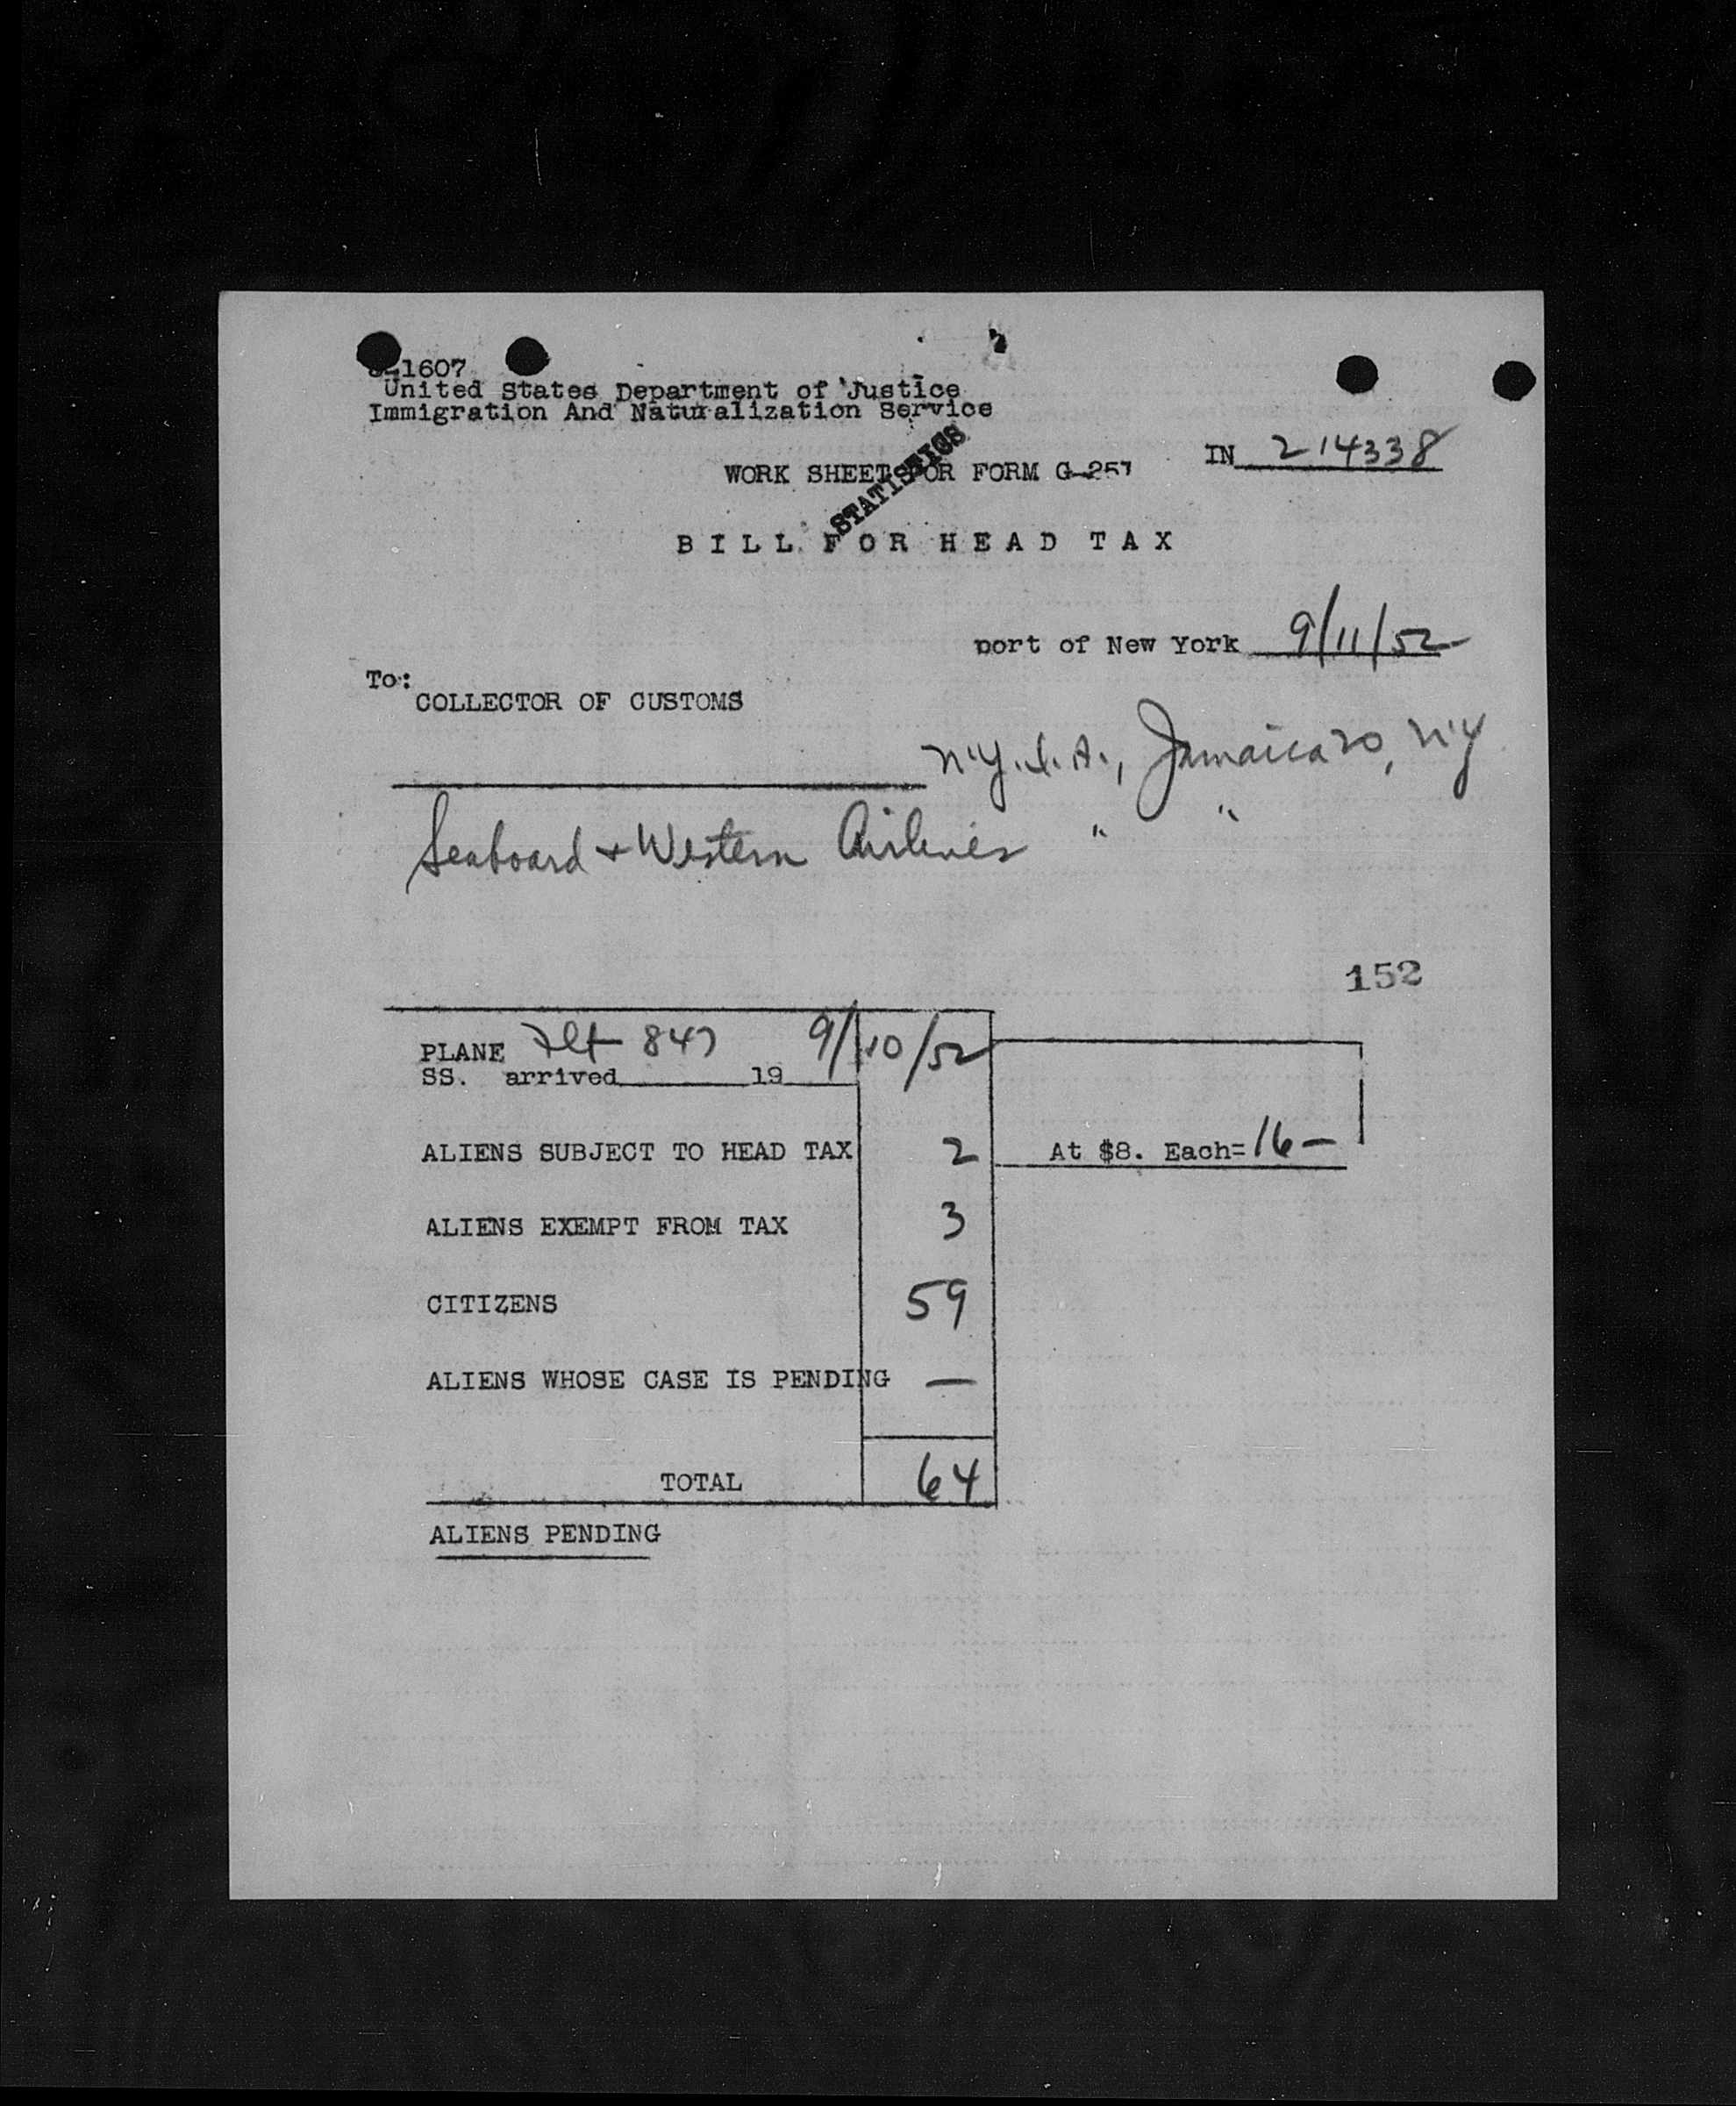 1607
United States Department of Justice
Immigration And Naturalization Service
IN 214338
WORK SHEET FOR FORM G-257
STATISTICS
BILL FOR HEAD TAX
port of New York 9/11/52
To:
COLLECTOR OF CUSTOMS
N.Y.I.A., Jamaica 20, N.Y
Seaboard + Western Airlines " "
152
PLANE Flt 847 9/10/52
SS. arrived 19
ALIENS SUBJECT TO HEAD TAX 2 At $8. Each= 16 —
ALIENS EXEMPT FROM TAX 3
CITIZENS 59
ALIENS WHOSE CASE IS PENDING —
TOTAL 64
ALIENS PENDING